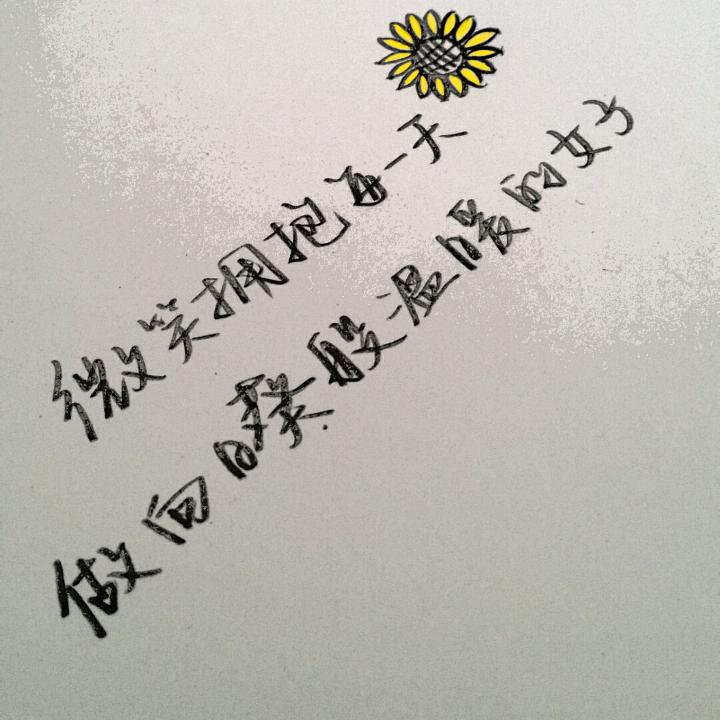 微笑拥抱每一天
做向日葵般温暖的女子